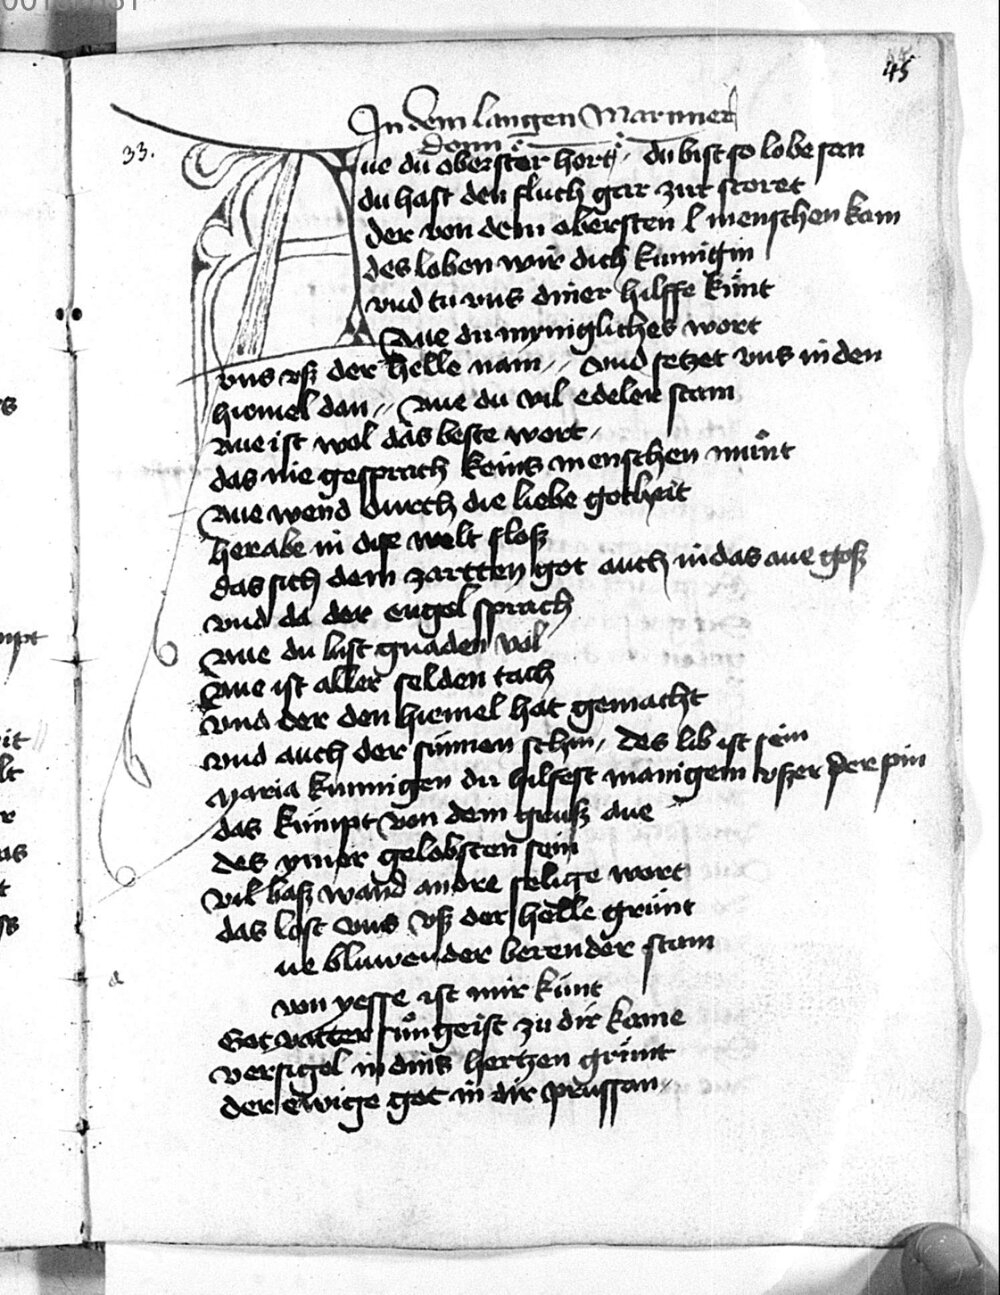 45
In dem langen Marnner
donn
33.
Aue du oberster hort, du bist so lobesan
du hast den fluch gar zur storet
der von dem obersten l menschen kam
des loben wir dich kunnigin
vnd tu vns diner hilffe kunt
Aue du mynigliches wort
vns vß der helle nam // Vnd setzet vns in den
himel dan // Aue du vil edeler stam
Aue ist wol das beste wort /
das nie gesprach keins menschen munt
Aue wend durch die liebe gotheit
her abe in dise welt floß
das sich dem zartten got auch in das aue goß
vnd da der engel sprach
Aue du bist gnaden vol
Aue ist aller selden tach
Vnd der den himel hat gemacht
vnd auch der sunnen schin / des lib ist sein
Maria kunnigen du hilfest manigem vßer der pin
das kumpt von dem gruß aue
des ymer gelobsten sein
vil baß wand andre selige wort
das lost vns vß der helle grunt
ue bluwender berender stam
a
von yesse ist mir kunt
Got vatter sun geist zu dir kame
versigel in dins hertzen grunt
der ewige got in dir